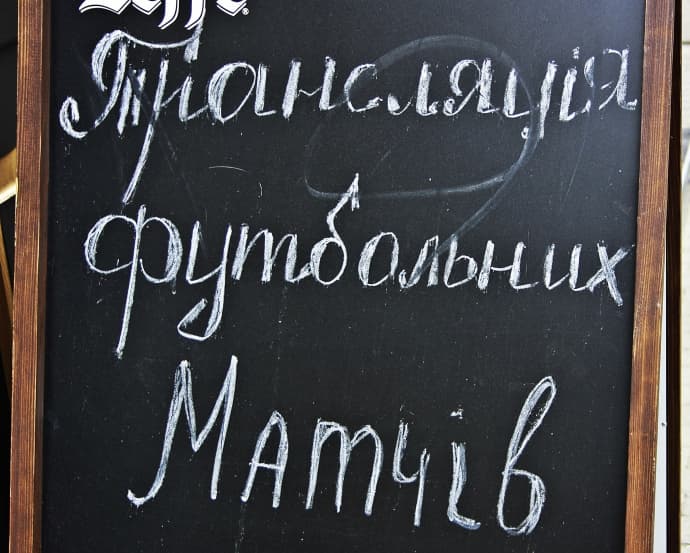 Leffe
Трансляція
футбольних
Матчів